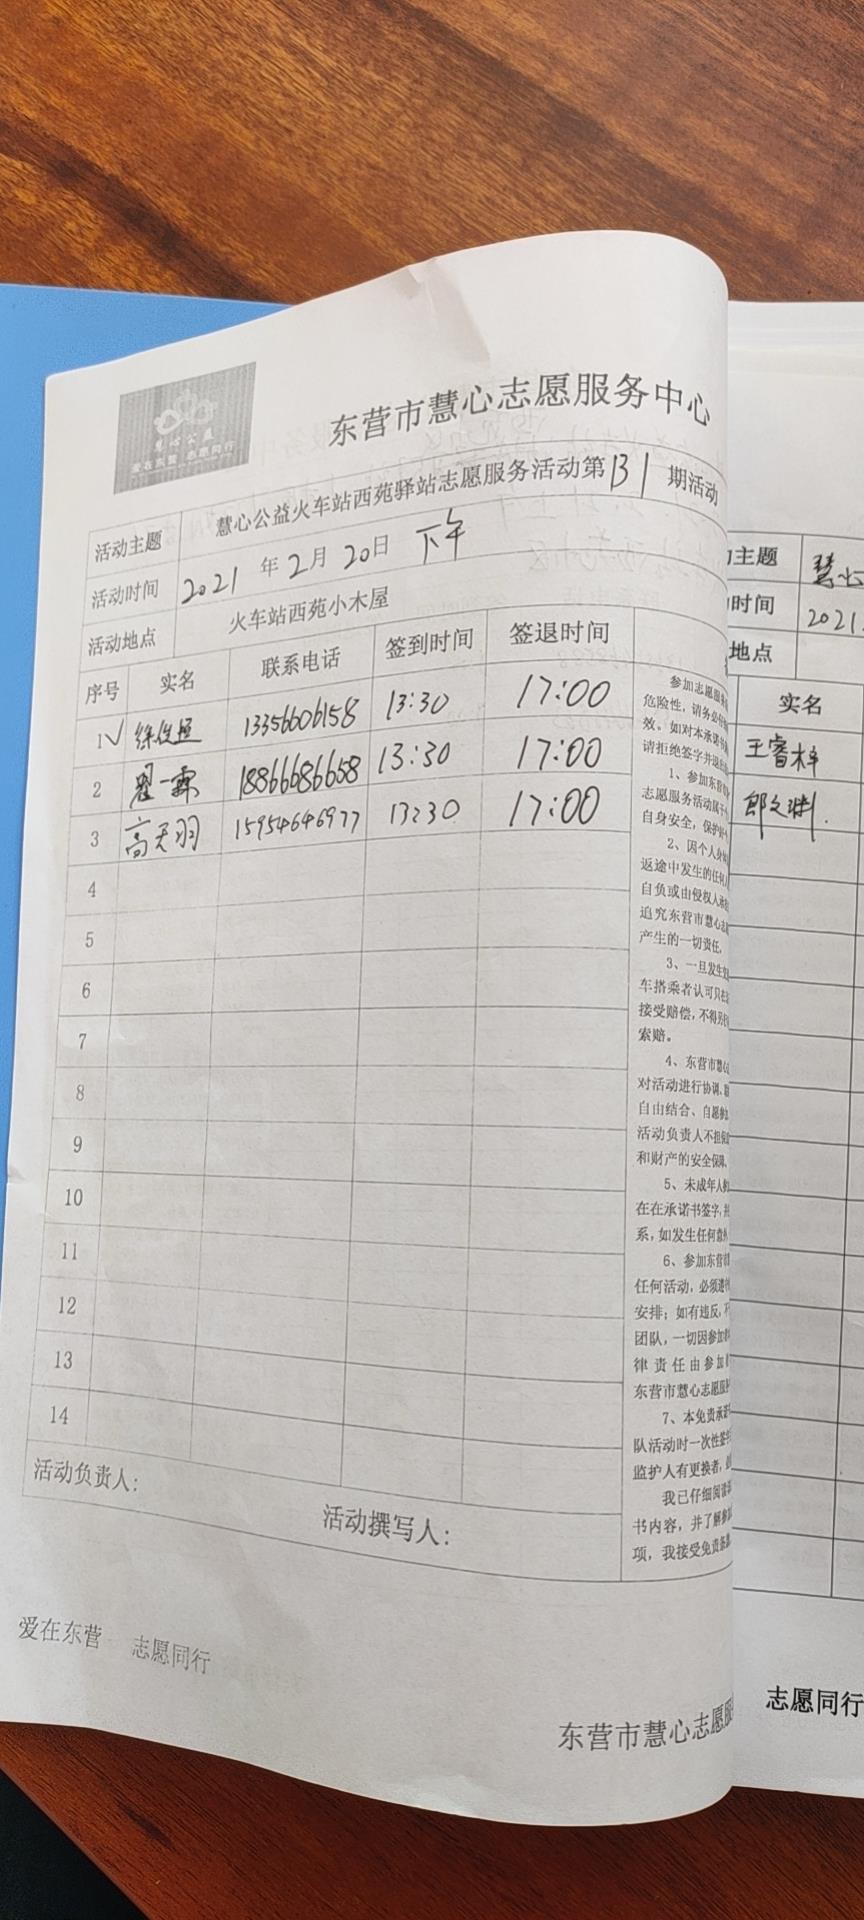 慧心公益
爱在东营 志愿同行
东营市慧心志愿服务中心
活动主题 慧心公益火车站西苑驿站志愿服务活动第131期活动
活动时间 2021年2月20日 下午
活动地点 火车站西苑小木屋
序号 实名 联系电话 签到时间 签退时间
1 √ 徐 13356606158 13:30 17:00
2 一霖 18866686658 13:30 17:00
3 高天羽 15954646977 13:30 17:00
4
5
6
7
8
9
10
11
12
13
14
活动负责人: 活动撰写人:
参加志愿服务
危险性,请务必
效。如对本承诺书
请拒绝签字并退出
1、参加东营
志愿服务活动属于
自身安全,保护好
2、因个人身体
返途中发生的任何
自负或由侵权人承担
追究东营市慧心志愿
产生的一切责任,
3、一旦发生
车搭乘者认可只在
接受赔偿,不得另行
索赔。
4、东营市慧心
对活动进行协调、
自由结合、自愿参加
活动负责人不担保
和财产的安全保障。
5、未成年人
在在承诺书签字,并
系,如发生任何意外
6、参加东营
任何活动,必须遵守
安排;如有违反,不
团队,一切因参加
律责任由参加
东营市慧心志愿服
7、本免责承诺
队活动时一次性签
监护人有更换者,
我已仔细阅读
书内容,并了解参加
项,我接受免责条款
爱在东营 志愿同行
东营市慧心志愿服
主题 慧心
时间 2021.
地点
实名
王睿梓
郎文渊
志愿同行